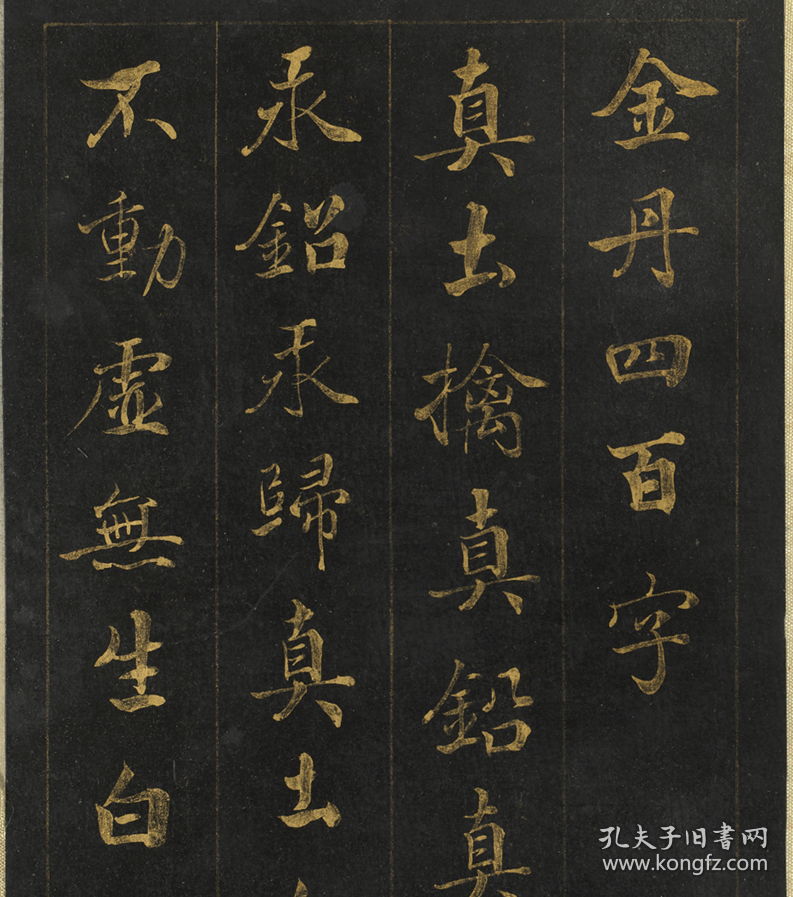 金丹四百字
真土擒真鉛真
汞鉛汞歸真土
不動虛無生白
孔夫子旧書网
www.kongfz.com